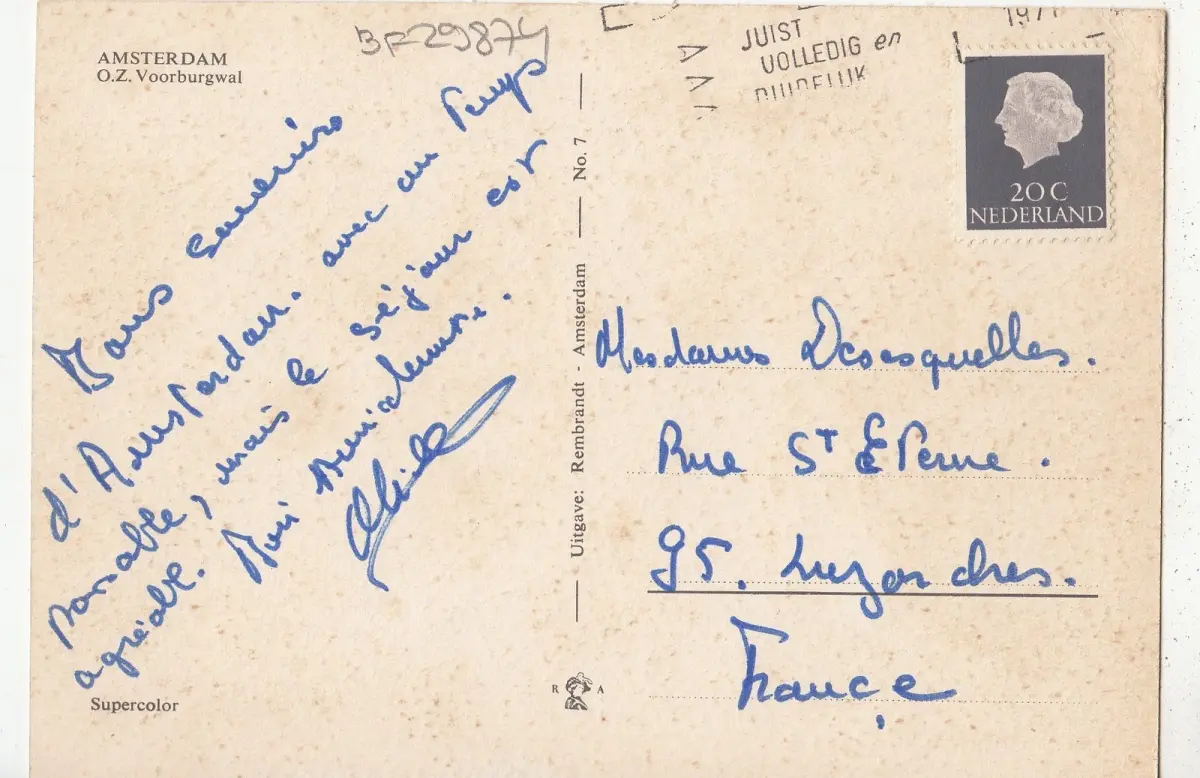 AMSTERDAM
O.Z. Voorburgwal
3F29874
Bons souvenirs
d'Amsterdam. avec un temps
passable, mais le séjour est
agréable.
Supercolor
Uitgave: Rembrandt - Amsterdam
No. 7
R A
JUIST
VOLLEDIG en
DUIDELIJK
1971
20 C
NEDERLAND
Mesdames Desesquelles.
Rue St Eterne.
95. Luzarches.
France